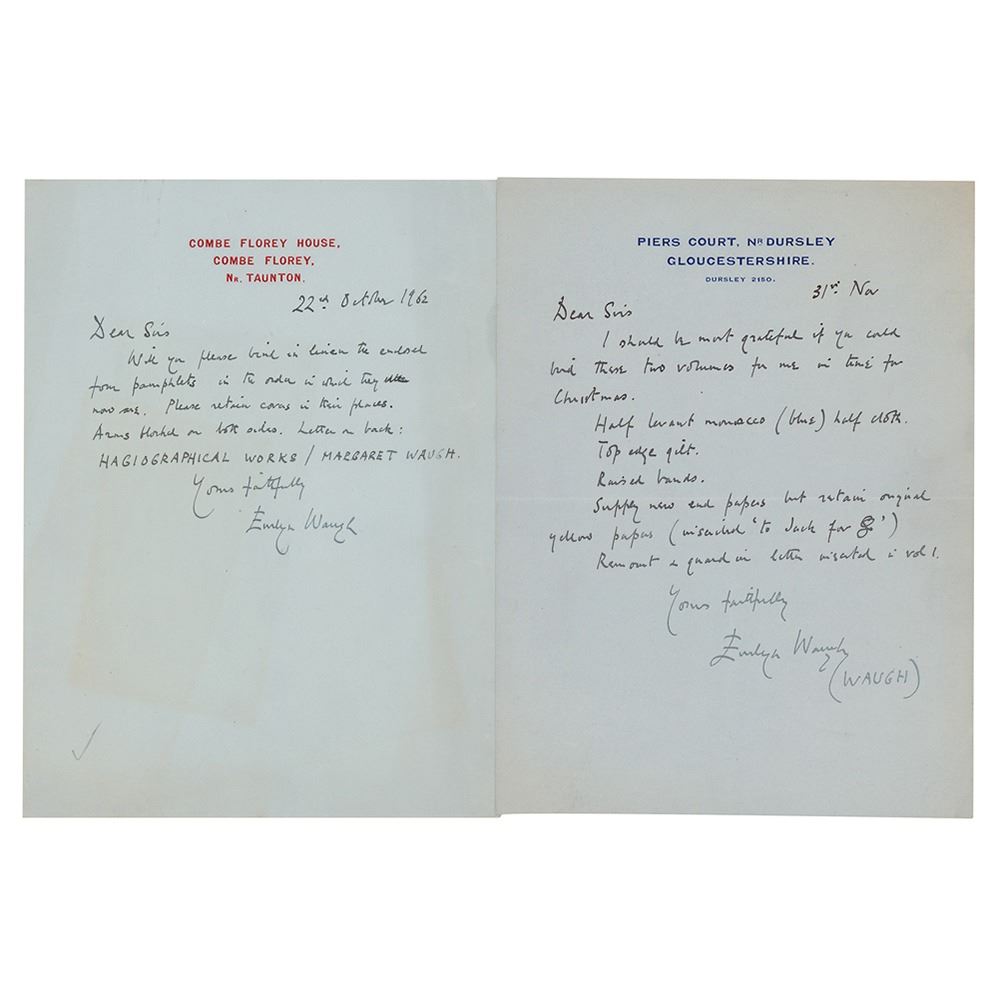 COMBE FLOREY HOUSE,
COMBE FLOREY,
NR. TAUNTON.
22nd October 1962
Dear Sirs
Will you please bind in linen the enclosed
four pamphlets in the order in which they
now are. Please retain covers in their places.
Arms blocked on both sides. Letter on back:
HAGIOGRAPHICAL WORKS / MARGARET WAUGH.
Yours faithfully
Evelyn Waugh
PIERS COURT, NR DURSLEY
GLOUCESTERSHIRE.
DURSLEY 2150.
31st Nov
Dear Sirs
I should be most grateful if you could
bind these two volumes for me in time for
Christmas.
Half levant morocco (blue) half cloth.
Top edge gilt.
Raised bands.
Supply new end papers but retain original
yellow papers (inscribed 'to Jack for')
Remount & guard in letter inserted in vol 1.
Yours faithfully
Evelyn Waugh
(WAUGH)